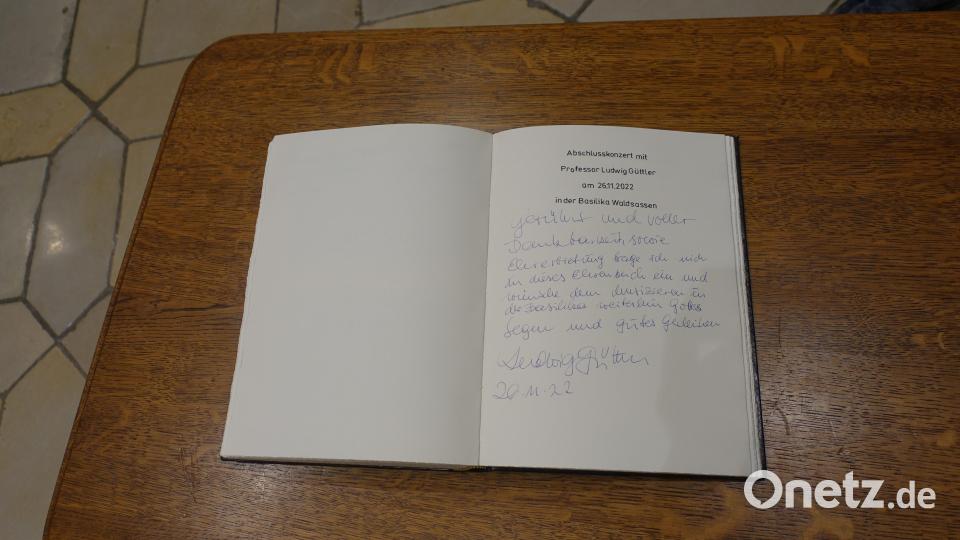 Abschlusskonzert mit
Professor Ludwig Güttler
am 26.11.2022
in der Basilika Waldsassen
gerührt und voller
Dankbarkeit sowie
Ehrerbietung trage ich mich
in dieses Ehrenbuch ein und
wünsche dem Musizieren in
der Basilika weiterhin Gottes
Segen und gutes Geleiten
Ludwig Güttler
26.11.22
Onetz.de